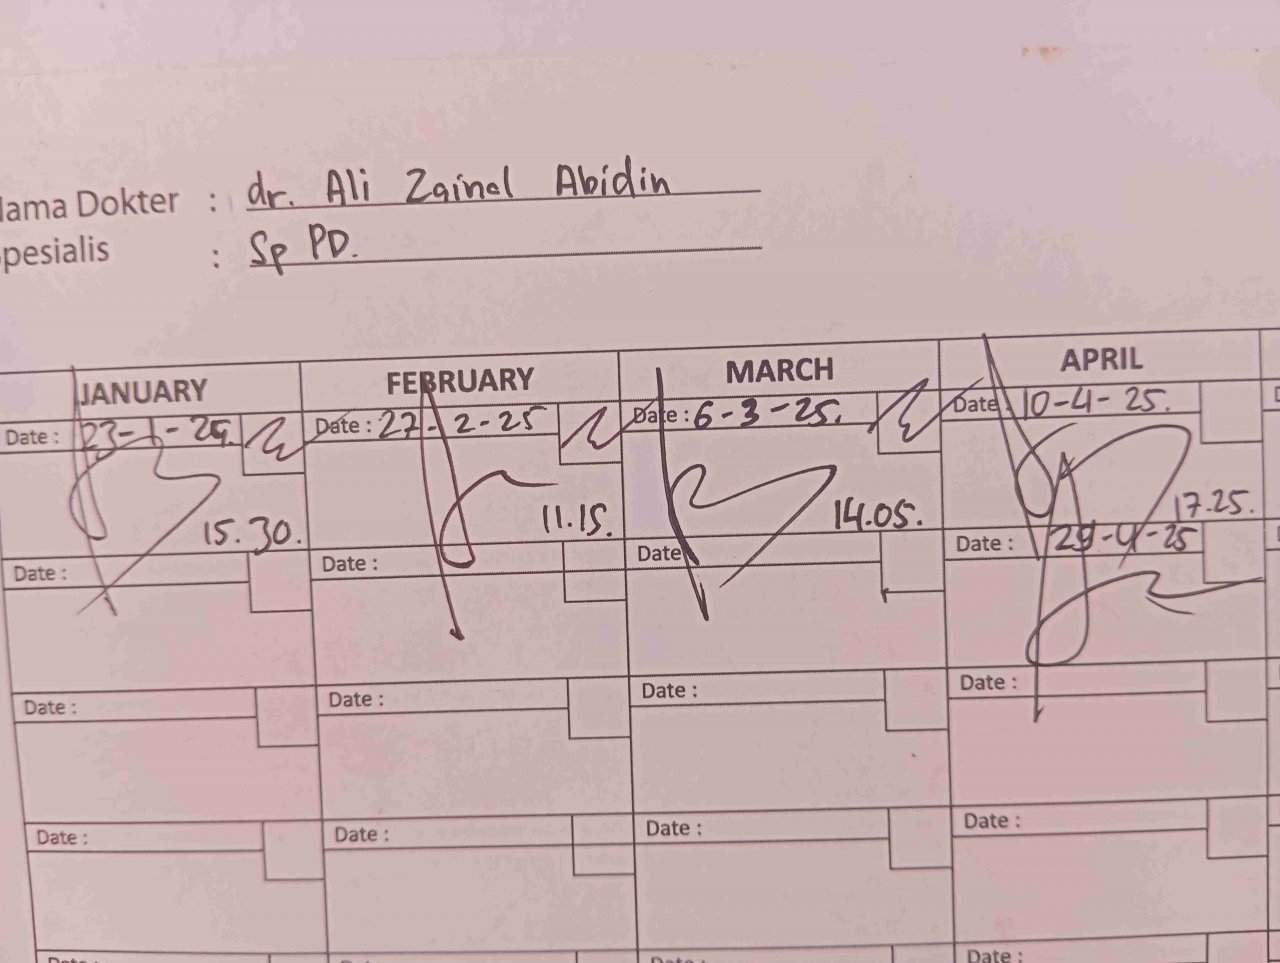 Nama Dokter : dr. Ali Zainal Abidin
Spesialis : Sp PD.
JANUARY FEBRUARY MARCH APRIL
Date : 23-1-25. Date : 27-2-25 Date : 6-3-25. Date : 10-4-25.
15.30. 11.15. 14.05. 17.25.
Date : Date : Date : Date : 29-4-25
Date : Date : Date : Date :
Date : Date : Date : Date :
Date : Date : Date : Date :